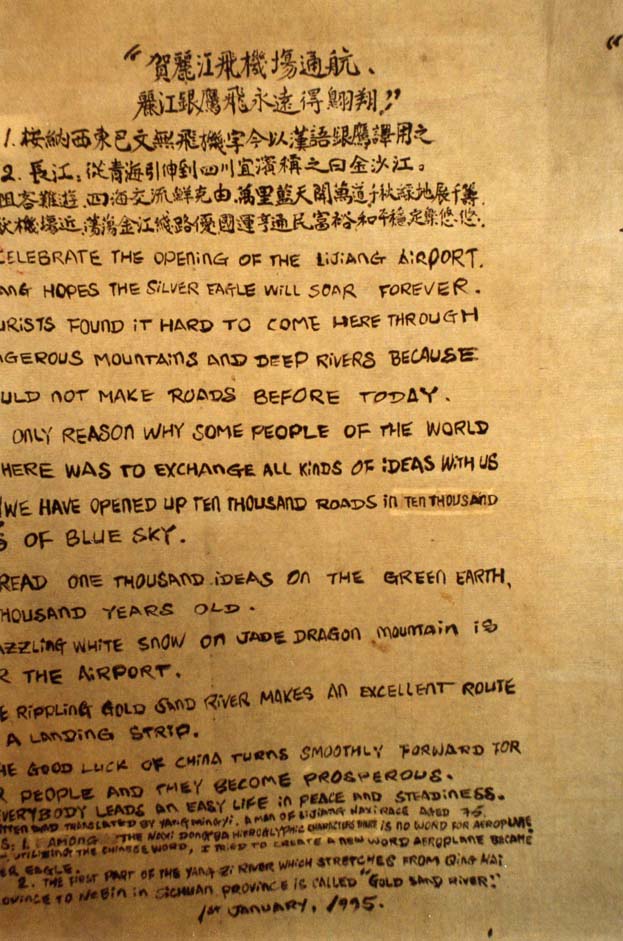 "賀麗江飛機塲通航、
麗江銀鷹飛永遠得翱翔!"
1. 桉納西東巴文無飛機字今以漢語銀鷹譯用之
2. 長江: 從青海引伸到四川宜濱稱之曰金沙江。
阻客難遊.四海交流鮮克由.萬里藍天開萬道千秋綠地展千籌.
機塲近.蕩漾金江綫路優國運亨通民富裕和平穩定樂悠.悠.
CELEBRATE THE OPENING OF THE LIJIANG AIRPORT.
ANG HOPES THE SILVER EAGLE WILL SOAR FOREVER.
URISTS FOUND IT HARD TO COME HERE THROUGH
NGEROUS MOUNTAINS AND DEEP RIVERS BECAUSE
OULD NOT MAKE ROADS BEFORE TODAY.
ONLY REASON WHY SOME PEOPLE OF THE WORLD
HERE WAS TO EXCHANGE ALL KINDS OF IDEAS WITH US
WE HAVE OPENED UP TEN THOUSAND ROADS IN TEN THOUSAND
S OF BLUE SKY.
READ ONE THOUSAND IDEAS ON THE GREEN EARTH,
THOUSAND YEARS OLD.
AZZLING WHITE SNOW ON JADE DRAGON MOUNTAIN IS
R THE AIRPORT.
E RIPPLING GOLD SAND RIVER MAKES AN EXCELLENT ROUTE
A LANDING STRIP.
HE GOOD LUCK OF CHINA TURNS SMOOTHLY FORWARD FOR
R PEOPLE AND THEY BECOME PROSPEROUS.
EVERYBODY LEADS AN EASY LIFE IN PEACE AND STEADINESS.
ITTEN AND TRANSLATED BY YANG MINGYI. A MAN OF LIJIANG NAXI RACE AGED 75.
S: 1. AMONG THE NAXI DONGBA HIEROGLYPHIC CHARACTERS THERE IS NO WORD FOR AEROPLANE
UTILIZING THE CHINESE WORD, I TRIED TO CREATE A NEW WORD AEROPLANE BECAME
ER EAGLE.
2. THE FIRST PART OF THE YANGZI RIVER WHICH STRETCHES FROM QING HAI
OVINCE TO NEBIN IN SICHUAN PROVINCE IS CALLED "GOLD SAND RIVER."
1ST JANUARY, 1995.